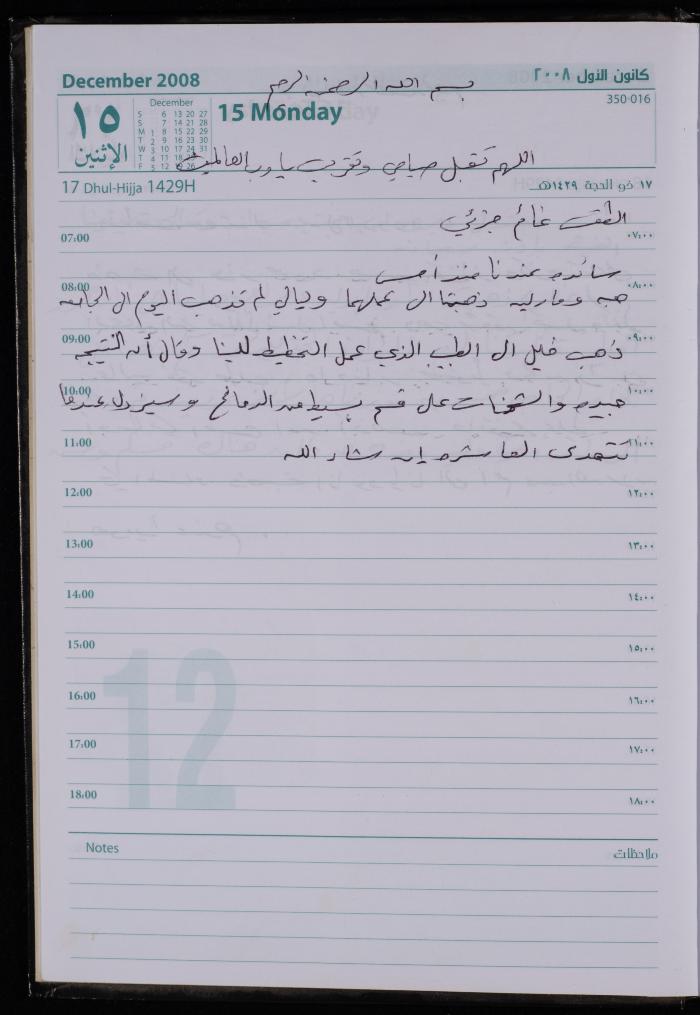 December 2008
كانون الأول ٢٠٠٨
بسم الله الرحمن الرحيم
350-016
December
S 6 13 20 27
S 7 14 21 28
M 1 8 15 22 29
T 2 9 16 23 30
W 3 10 17 24 31
T 4 11 18
F 5 12 19 26
١٥
الإثنين
15 Monday
اللهم تقبل صيامي وتقربي يا رب العالمين
17 Dhul-Hijja 1429H
١٧ ذو الحجة ١٤٢٩هـ
الطقس غائم جزئي
07:00 ٠٧:٠٠
سائده عندنا منذ أمس
08:00 ٠٨:٠٠
هبه وماريه ذهبتا الى عملهما وليالي لم تذهب اليوم الى الجامعه
09:00 ٠٩:٠٠
ذهب خليل الى الطبيب الذي عمل التخطيط للينا وقال أن النتيجه
10:00 ١٠:٠٠
جيده والشحنات على قسم بسيط من الدماغ وسيزول عندما
11:00 ١١:٠٠
تتعدى العاشره إن شاء الله
12:00 ١٢:٠٠
13:00 ١٣:٠٠
14:00 ١٤:٠٠
15:00 ١٥:٠٠
16:00 ١٦:٠٠
17:00 ١٧:٠٠
18:00 ١٨:٠٠
12
Notes
ملاحظات